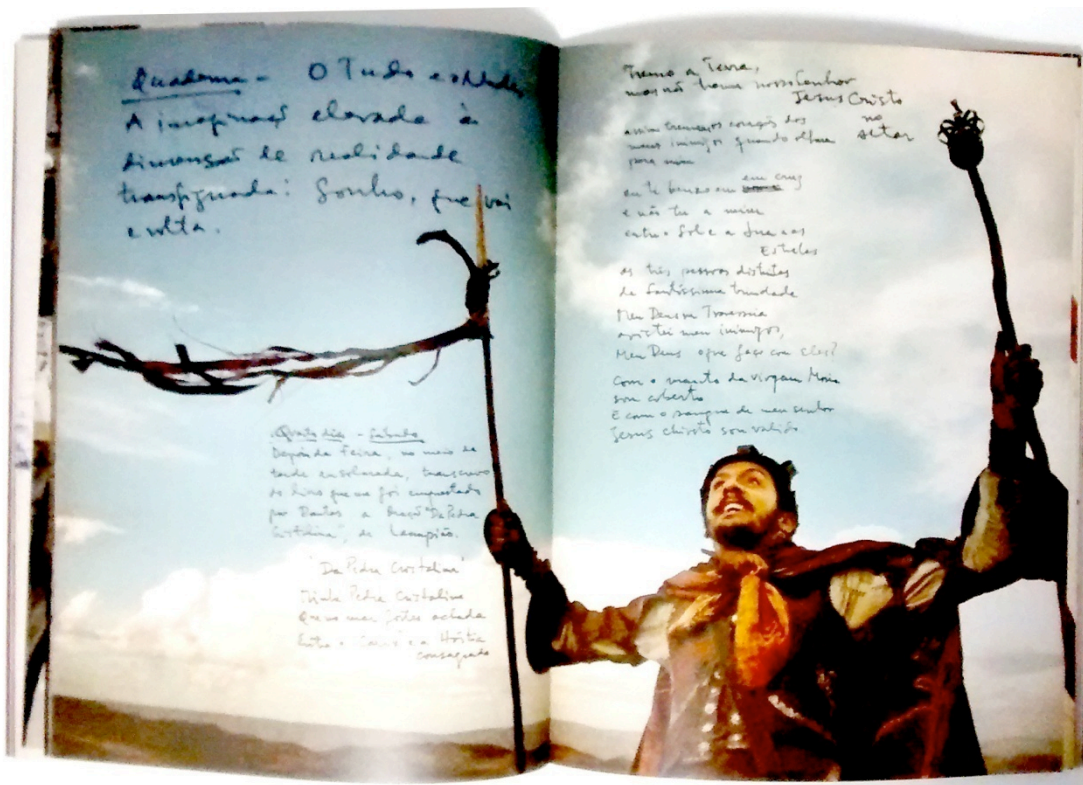 Quaderna - O Tudo e o Nada
A imaginação elevada à
dimensão de realidade
transfigurada: Sonho, que vai
e volta.
Quarto dia - Sábado
Depois da Feira, no meio da
tarde ensolarada, transcrevo
do livro que me foi emprestado
por Dantas a Oração "Da Pedra
Cristalina", de Lampião.
"Da Pedra Cristalina"
Minha Pedra Cristalina
Que no mar fostes achada
Entre o Cálix e a Hóstia
consagrada
Treme a Terra,
mas não treme nosso Senhor
Jesus Cristo
no
altar
assim tremem os corações dos
meus inimigos quando olharem
para mim
eu te benzo em em cruz
e não tu a mim
entre o Sol e a Lua e as
Estrelas
as três pessoas distintas
da Santíssima trindade
Meu Deus na Travessia
avistei meus inimigos,
Meu Deus o que faço com eles?
Com o manto da virgem Maria
sou coberto
E com o sangue de meu senhor
Jesus christo sou valido